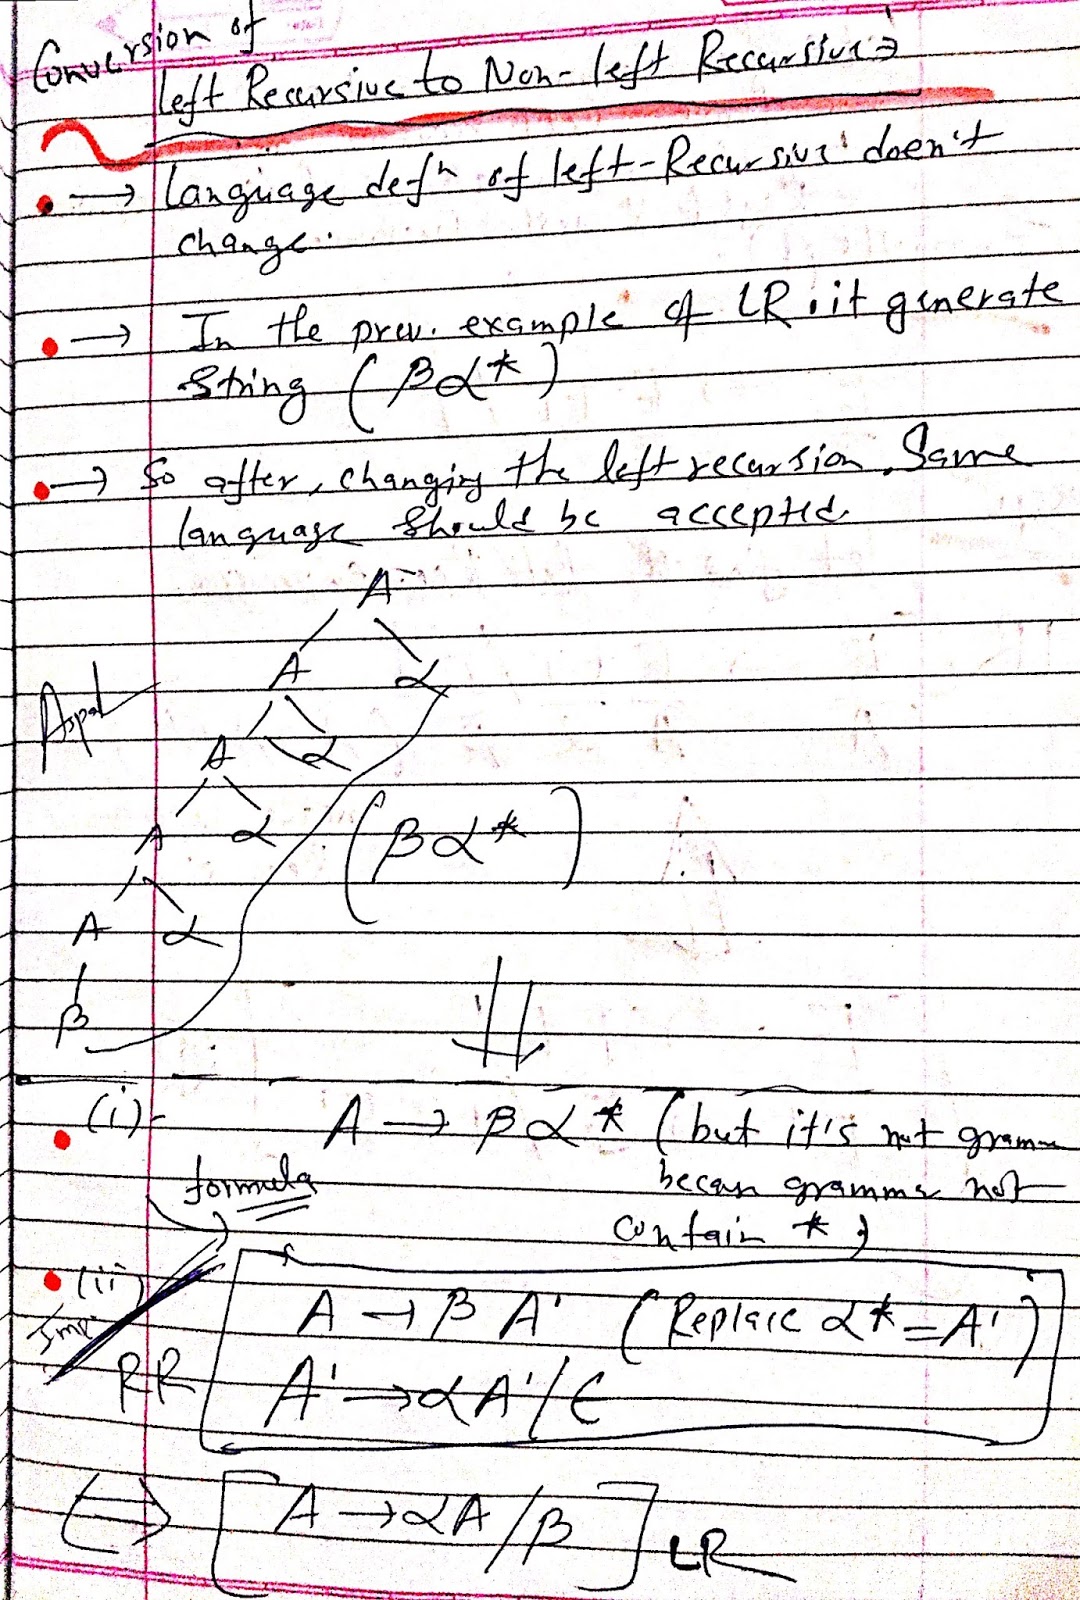 Conversion of
left Recursive to Non-left Recursive →
• → language defn of left-Recursive doen't
change.
• → In the prev. example of LR. it generate
string (βα*)
• → So after, changing the left recursion, Same
language should be accepted.
A
A α
A α
A α (βα*)
A α
β
(i)- A → βα* (but it's not gramm
becau grammar not
contain *)
formula
(ii) A → βA' (Replace α* = A')
Imp
RR A' → αA'/ε
⇔ [A → αA/β] LR